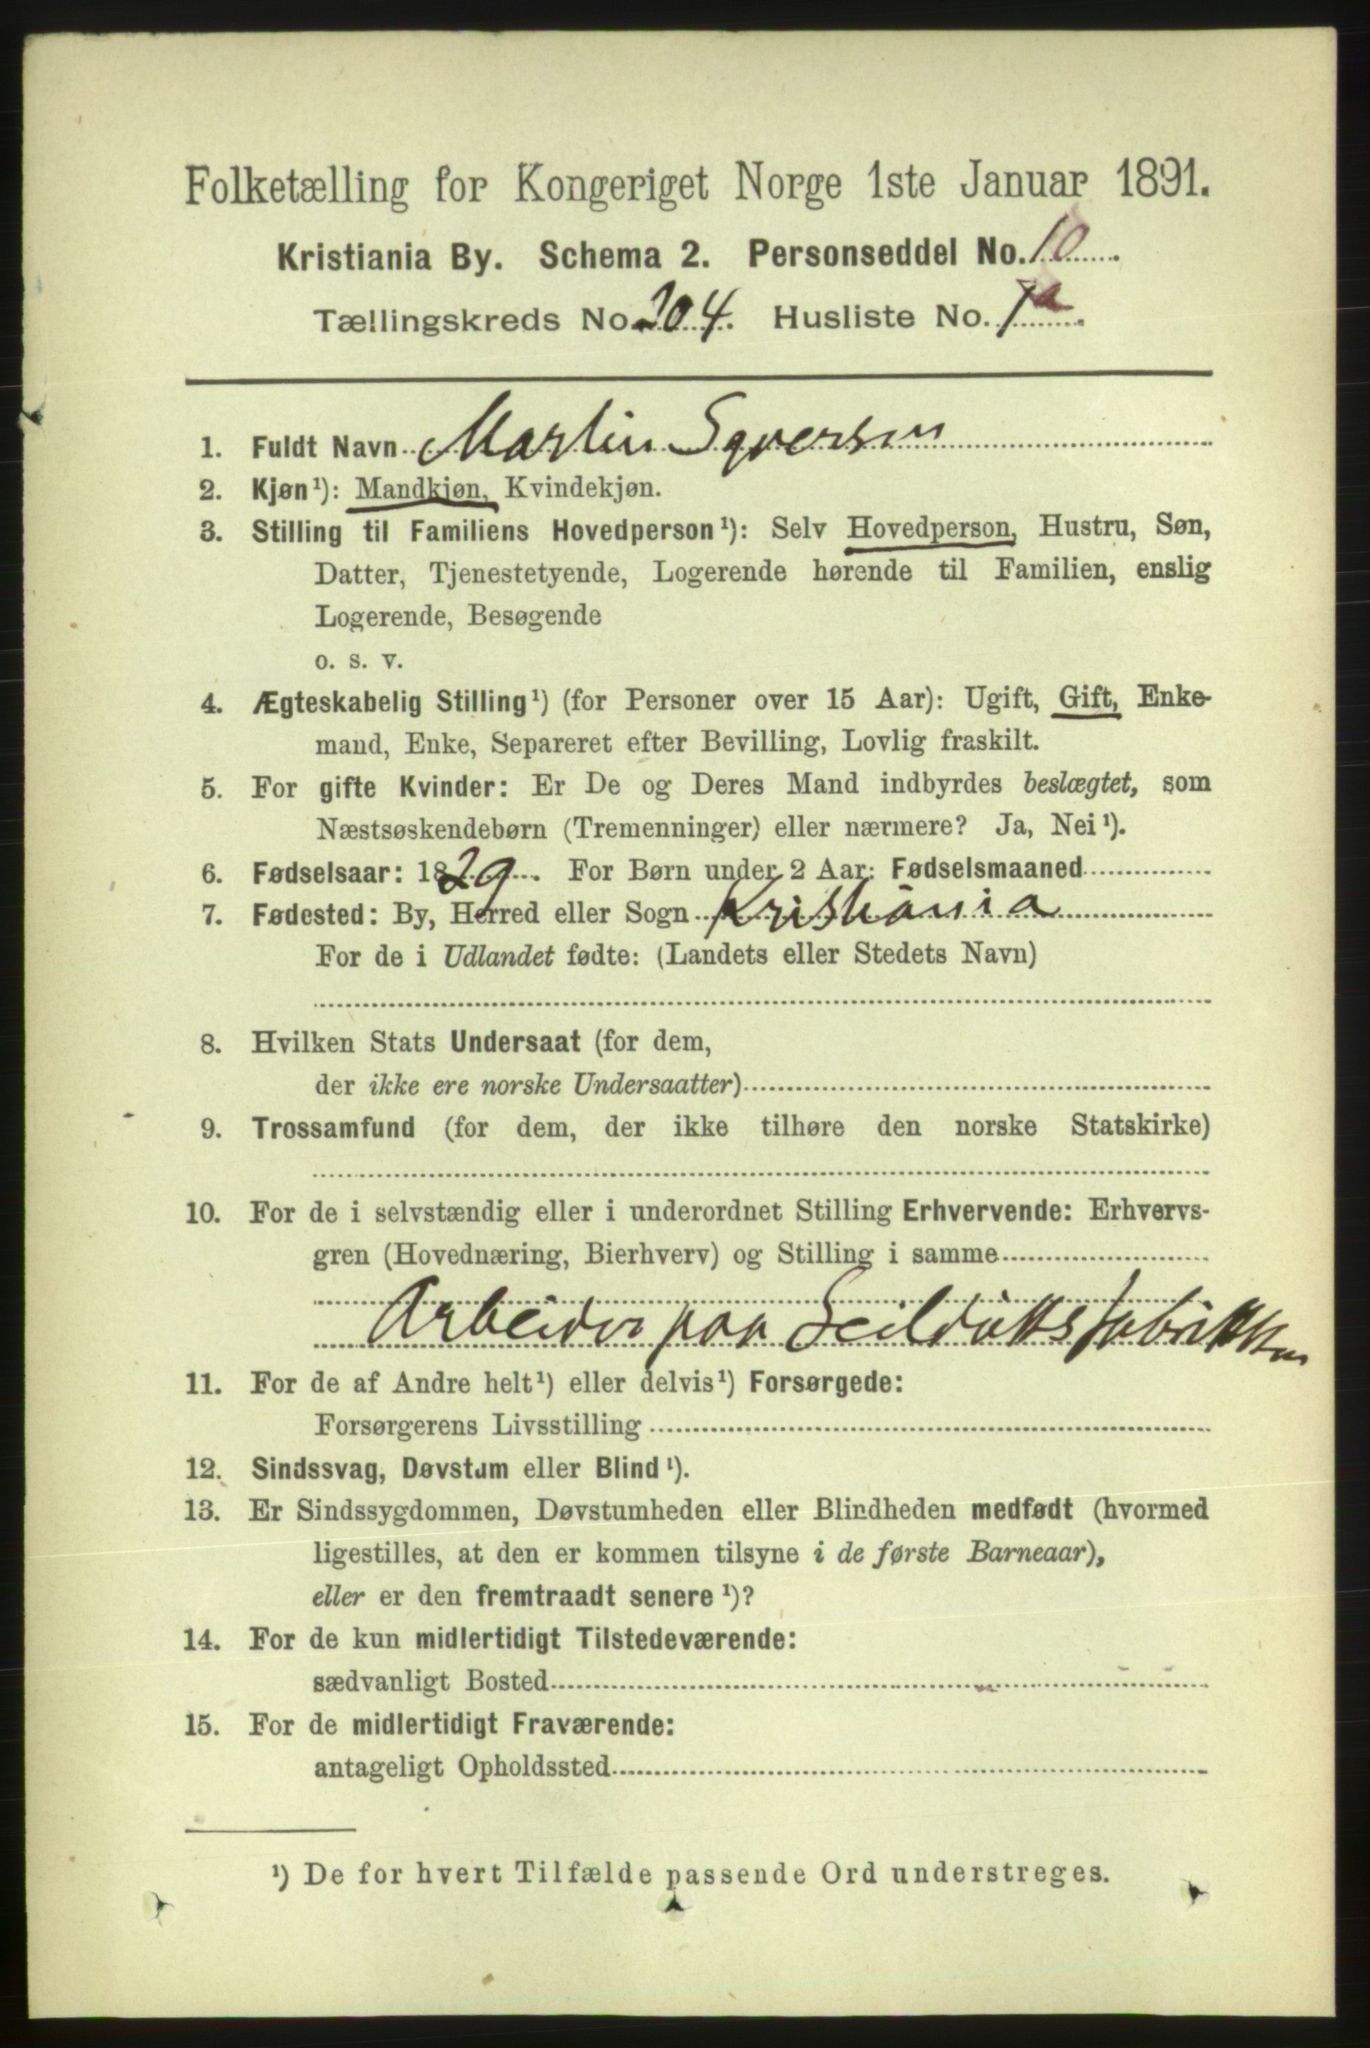 Folketælling for Kongeriget Norge 1ste Januar 1891.
Kristiania By. Schema 2. Personseddel No. 10.
Tællingskreds No. 204. Husliste No. 1a.
1. Fuldt Navn Martin Syversen
2. Kjøn¹): Mandkjøn, Kvindekjøn.
3. Stilling til Familiens Hovedperson¹): Selv Hovedperson, Hustru, Søn,
Datter, Tjenestetyende, Logerende hørende til Familien, enslig
Logerende, Besøgende
o. s. v.
4. Ægteskabelig Stilling¹) (for Personer over 15 Aar): Ugift, Gift, Enke-
mand, Enke, Separeret efter Bevilling, Lovlig fraskilt.
5. For gifte Kvinder: Er De og Deres Mand indbyrdes beslægtet, som
Næstsøskendebørn (Tremenninger) eller nærmere? Ja, Nei¹).
6. Fødselsaar: 1829. For Børn under 2 Aar: Fødselsmaaned
7. Fødested: By, Herred eller Sogn Kristiania
For de i Udlandet fødte: (Landets eller Stedets Navn)
8. Hvilken Stats Undersaat (for dem,
der ikke ere norske Undersaatter)
9. Trossamfund (for dem, der ikke tilhøre den norske Statskirke)
10. For de i selvstændig eller i underordnet Stilling Erhvervende: Erhvervs-
gren (Hovednæring, Bierhverv) og Stilling i samme
Arbeider paa Seildugsfabrikken
11. For de af Andre helt¹) eller delvis¹) Forsørgede:
Forsørgerens Livsstilling
12. Sindssvag, Døvstum eller Blind¹).
13. Er Sindssygdommen, Døvstumheden eller Blindheden medfødt (hvormed
ligestilles, at den er kommen tilsyne i de første Barneaar),
eller er den fremtraadt senere¹)?
14. For de kun midlertidigt Tilstedeværende:
sædvanligt Bosted
15. For de midlertidigt Fraværende:
antageligt Opholdssted
¹) De for hvert Tilfælde passende Ord understreges.